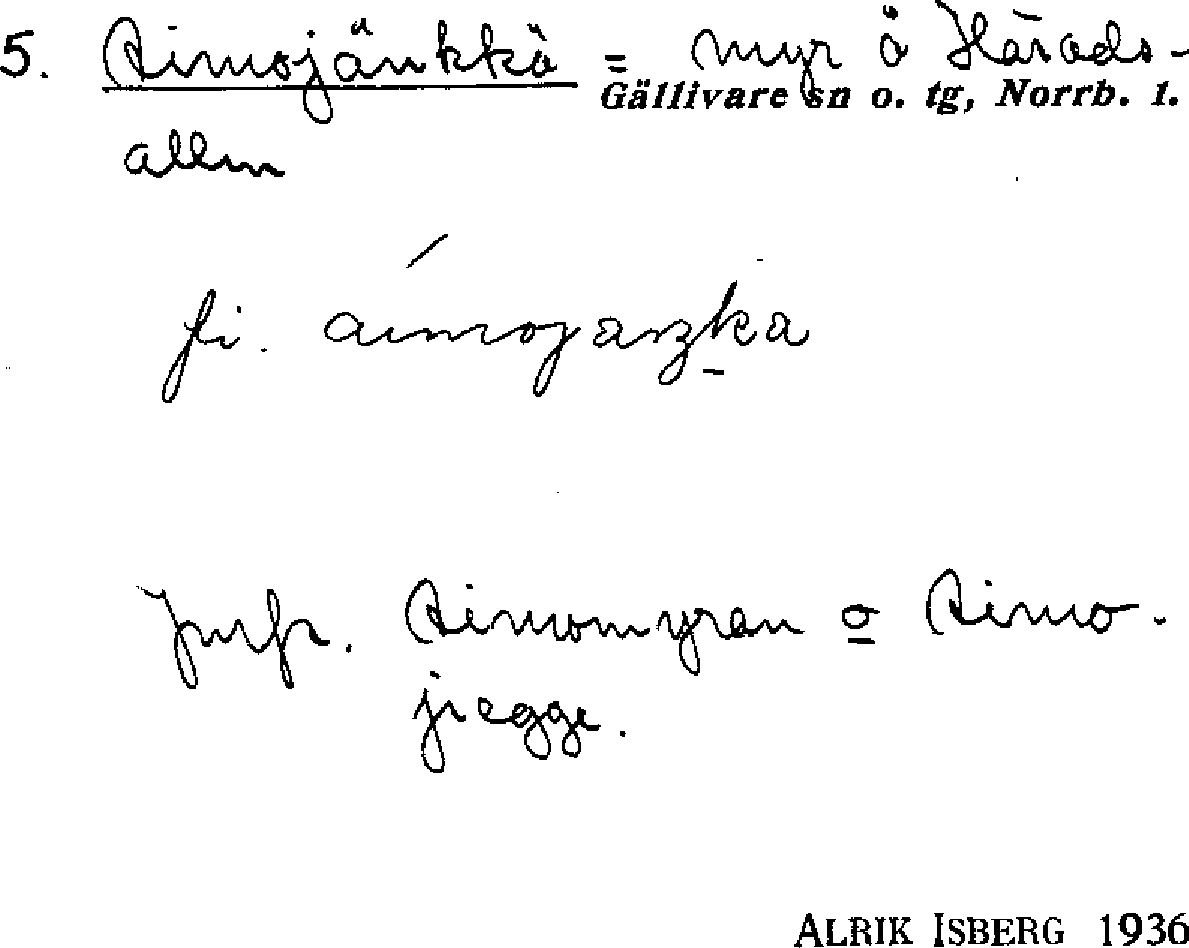 5. Aimojänkkä = myr å Härads-
Gällivare sn o. tg, Norrb. l.
allm
fi. aimojaŋka
Jmfr. Aimomyran o Aimo-
jiegge.
ALRIK ISBERG 1936